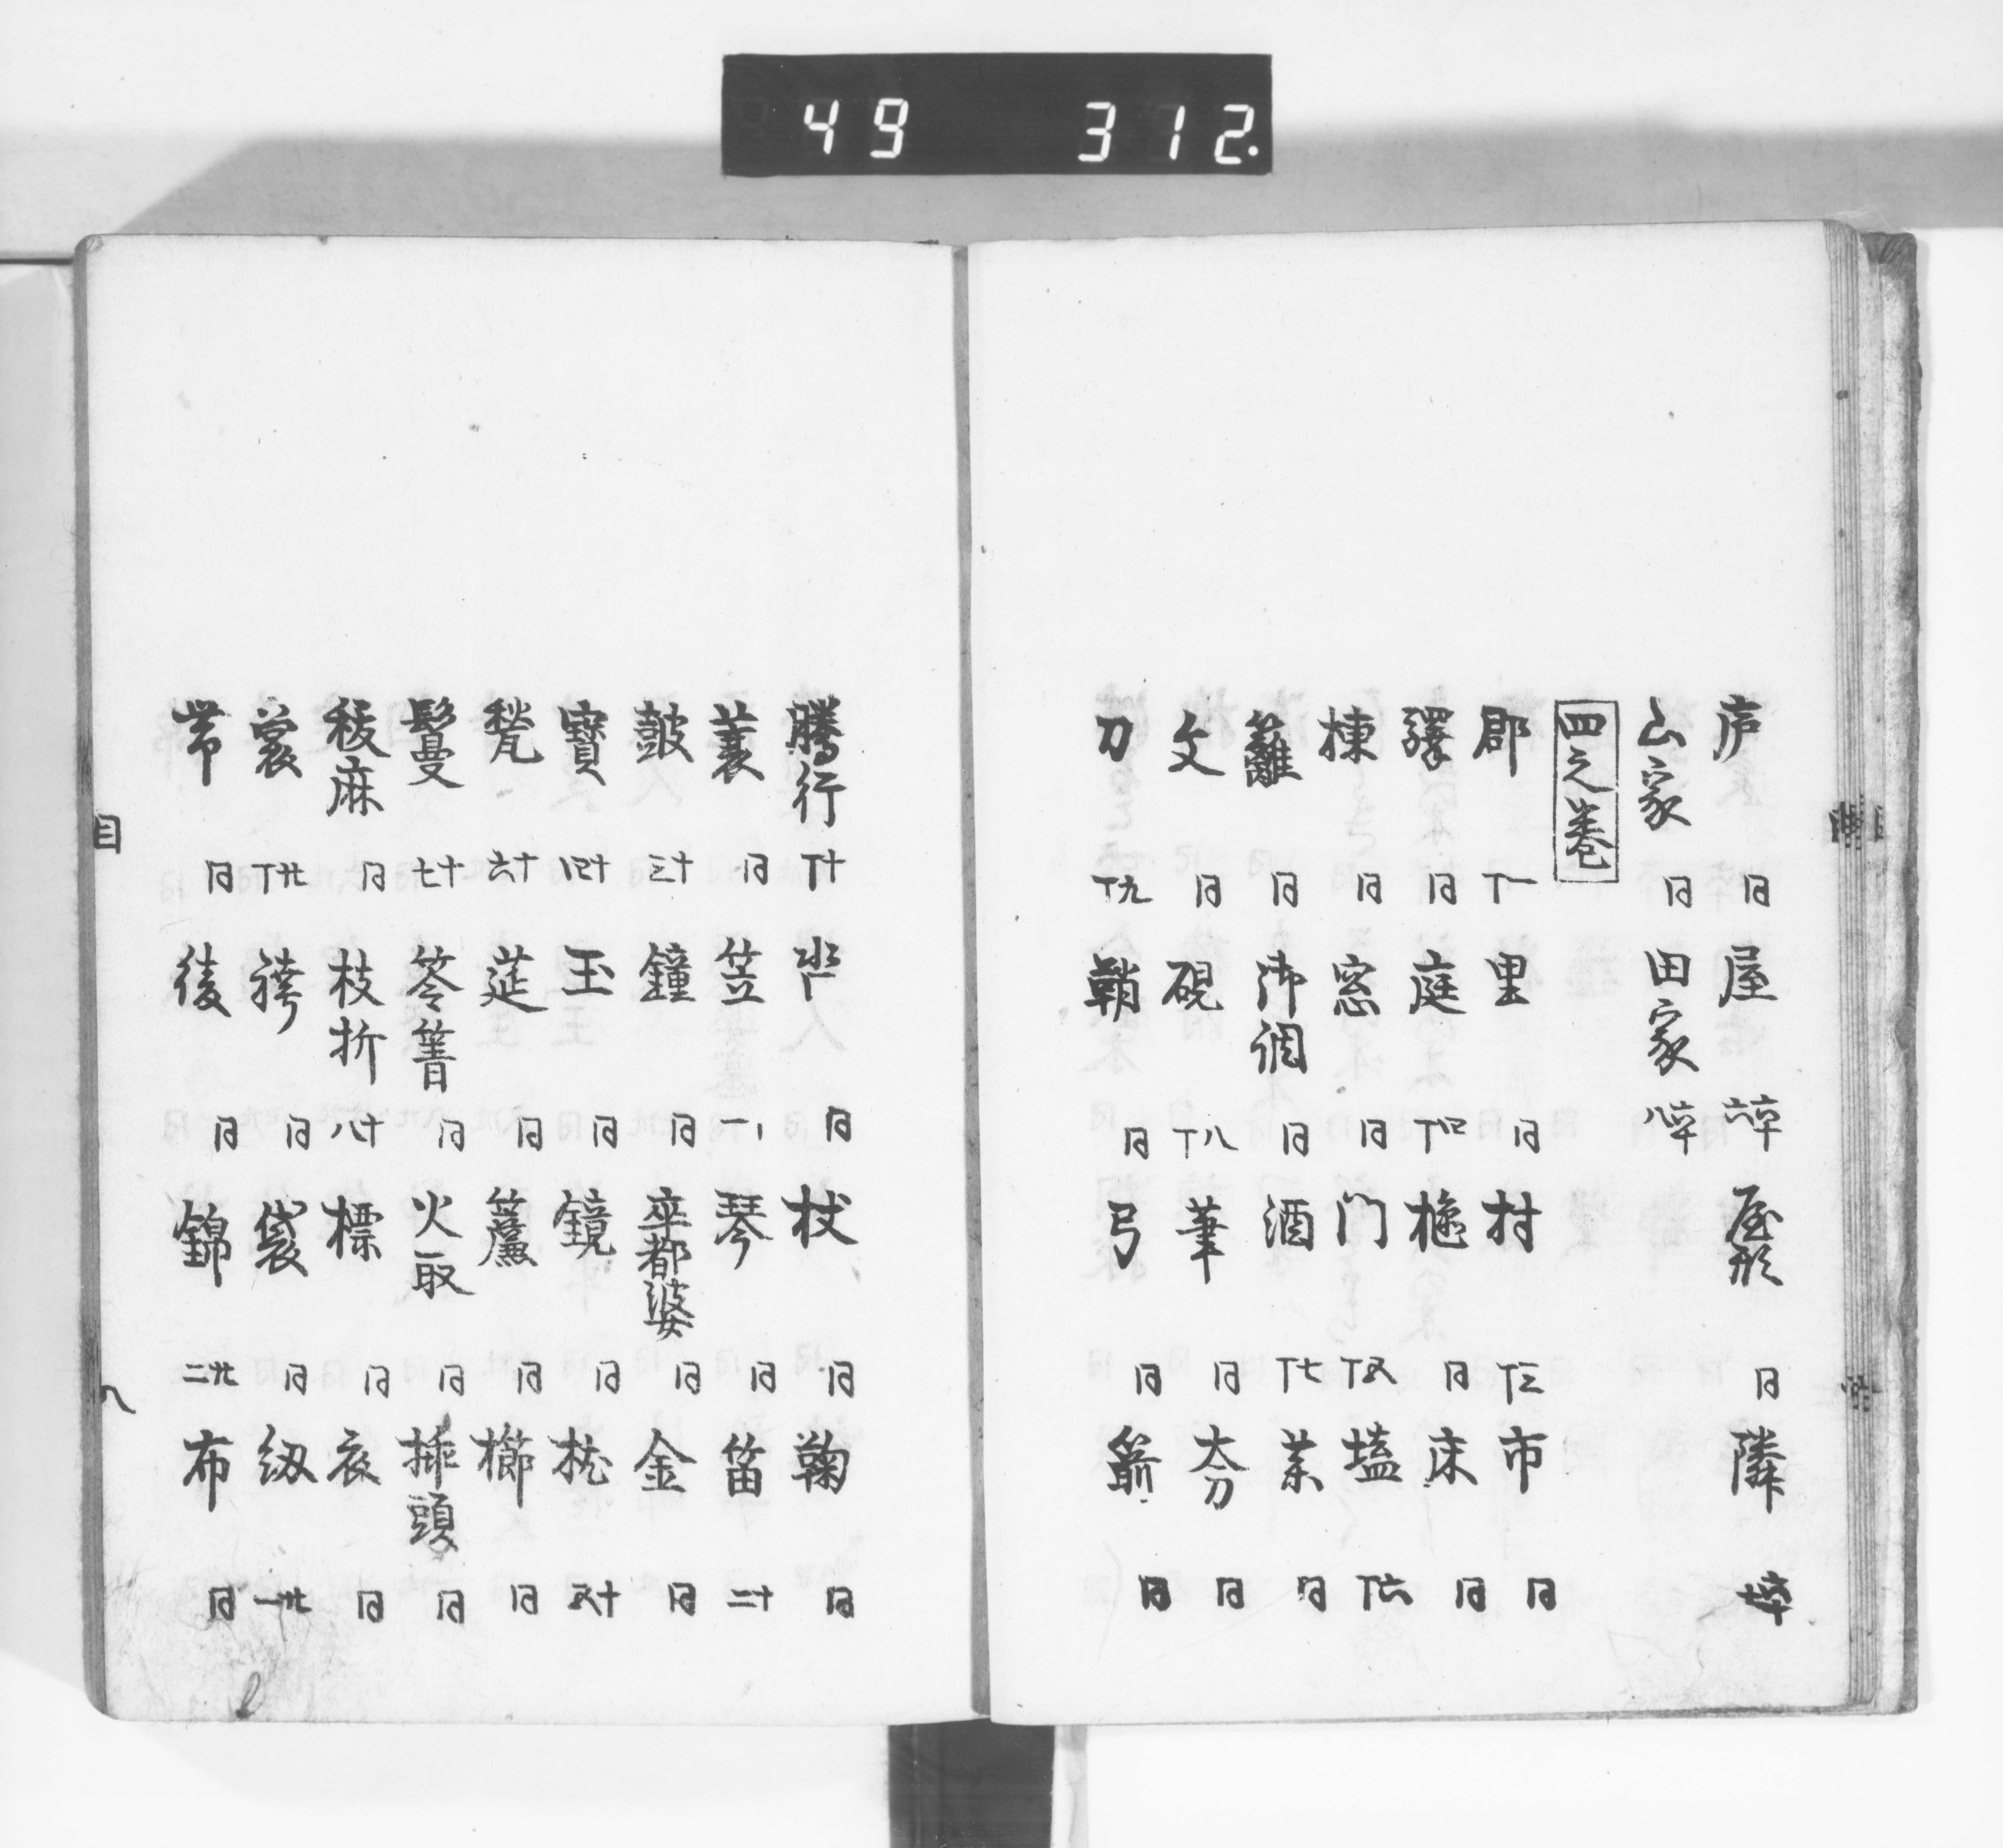 49 312.
庐 同 屋 六卆 屋形 同 隣 七卆
山家 同 田家 八卆
四之巻
郡 一丁 里 同 村 三丁 市 同
驛 同 庭 四丁 樋 同 床 同
棟 同 窓 同 门 五丁 壒 六丁
籬 同 御調 同 酒 七丁 茶 同
文 同 硯 八丁 筆 同 大刀 同
刀 九丁 鞘 同 弓 同 箭 同
騰行 十丁 同 杖 同 鞠 同
蓑 同 笠 十一 琴 同 笛 十二
皷 十三 鐘 同 卒都婆 同 金 同
寶 十四 玉 同 鏡 同 枕 十五
甃 十六 莚 同 簾 同 櫛 同
鬘 十七 笭箐 同 火取 同 挿頭 同
秡麻 同 枝折 十八 標 同 衣 同
裳 廿丁 袴 同 袋 同 綴 廿一
帯 同 後 同 錦 廿二 布 同
目 八